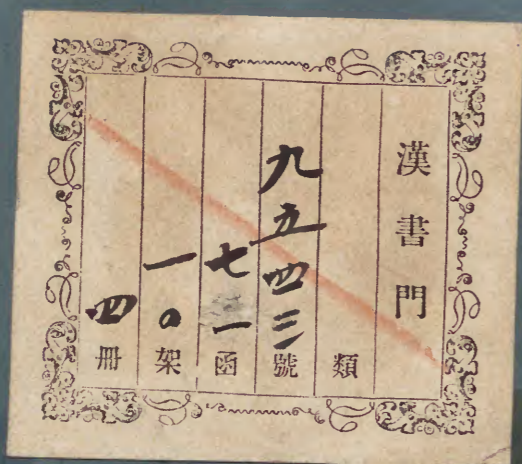 漢書門
類
九五四三號
七一函
一〇架
四冊